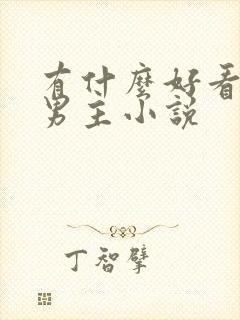 有什麼好看
男主小說
丁智擘